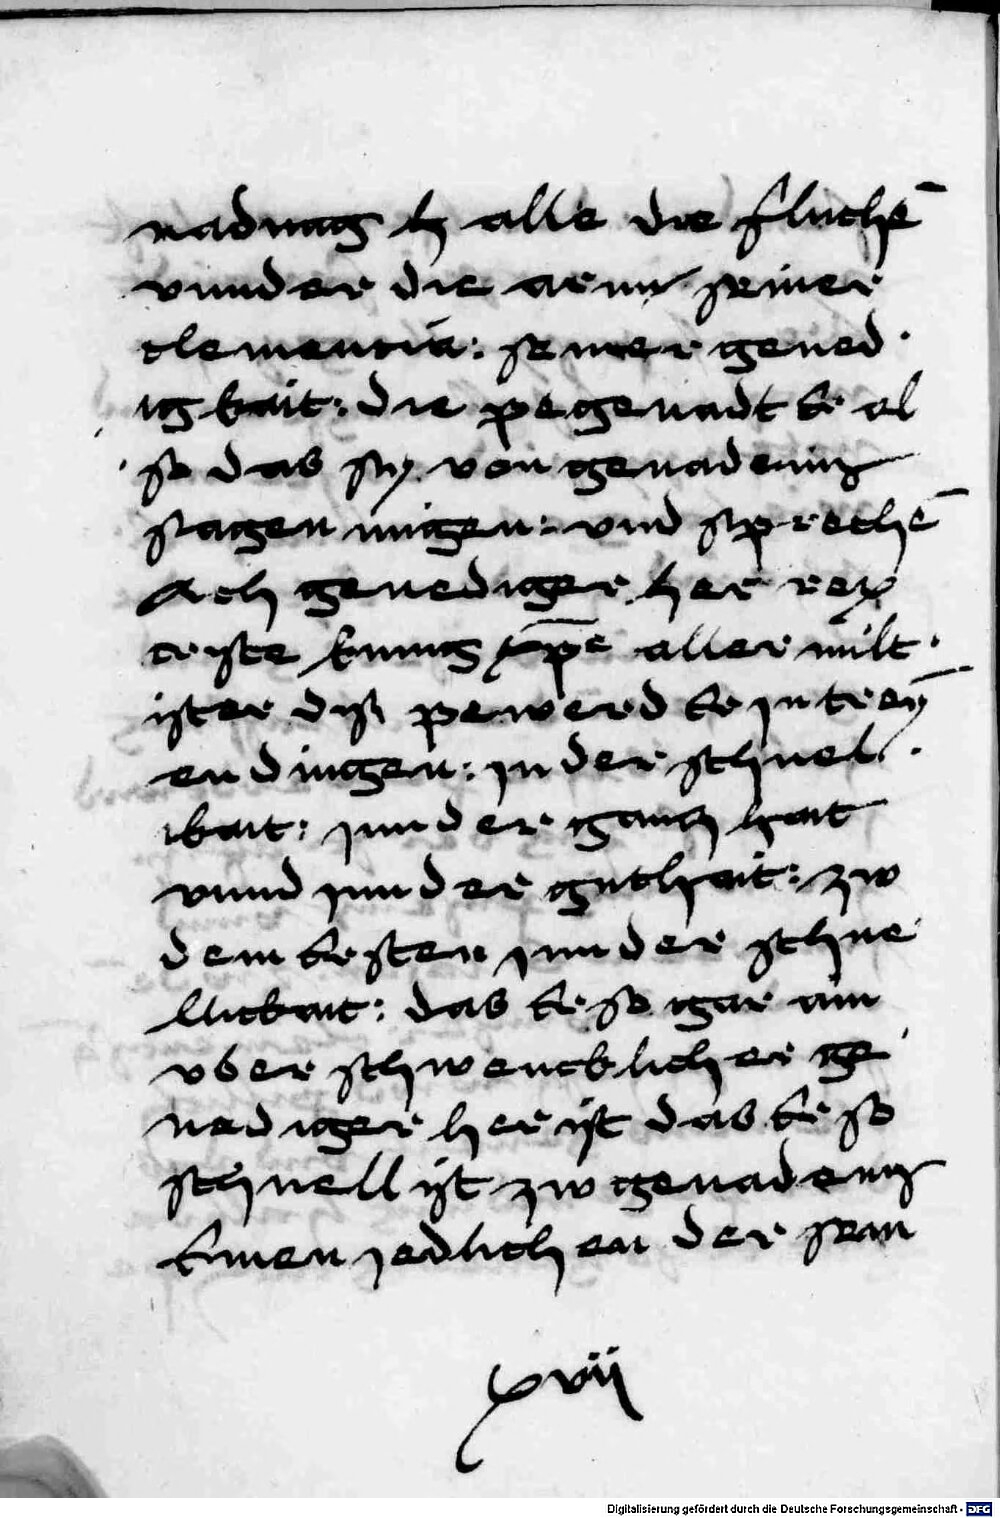 nadung h alle die fluchē
vnnder die arm seiner
clementia: seiner gened
igkait: die pegenadt Er al
so das sy von genadenn
sagen mügen: vnd sprechē
Ach genediger her rex
criste kunig xp̄e aller milt
ister diß pewerd Er in treȳ
en dingen: in der schnel
ikait: inn der gantzhait
vnnd inn der guthait: zw
dem Ersten inn der schne
llickait: das Er so gar ain
vber schwencklicher ge
nediger her ist das Er so
schnell ist zw genadenn
Einen jedlichen der sein
xvii
Digitalisierung gefördert durch die Deutsche Forschungsgemeinschaft - DFG